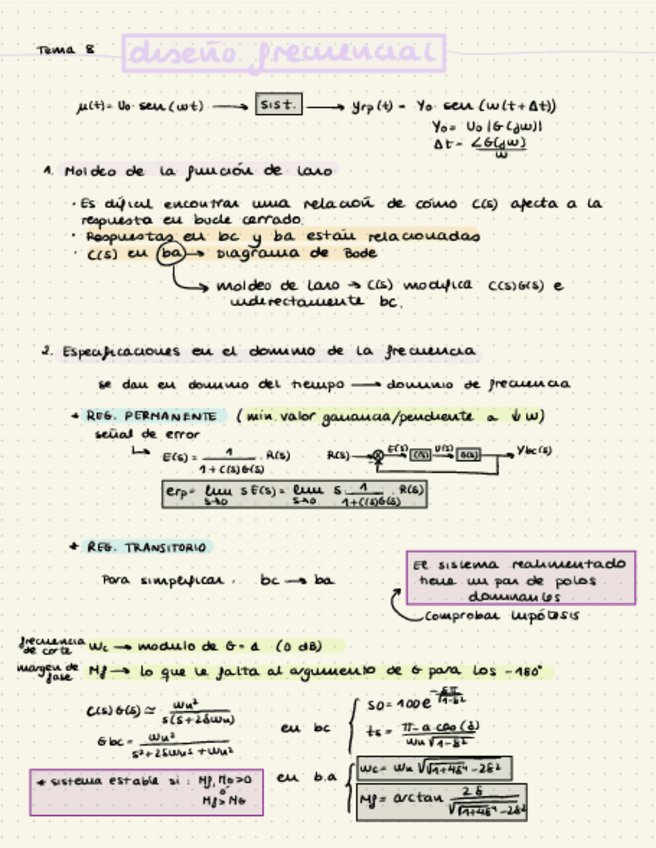 Tema 8
diseño frecuencial
μ(t) = U₀· sen (wt) → sist. → yrp(t) = Y₀ sen (w(t+Δt))
Y₀ = U₀ |G(jw)|
Δt = ∠G(jw)/w
1. Moldeo de la función de lazo
· Es difícil encontrar una relación de cómo C(s) afecta a la
respuesta en bucle cerrado.
· Respuestas en bc y ba están relacionadas
· C(s) en ba → Diagrama de Bode
→ moldeo de lazo → C(s) modifica C(s)G(s) e
indirectamente bc.
2. Especificaciones en el dominio de la frecuencia
se dan en dominio del tiempo → dominio de frecuencia
* REG. PERMANENTE (min. valor ganancia/pendiente a ↓w)
señal de error
↳ E(s) = 1/(1+C(s)G(s)) · R(s)
R(s) → ⊗ E(s) C(s) U(s) G(s) → Ybc(s)
erp = lim s→0 s E(s) = lim s→0 s· 1/(1+C(s)G(s)) · R(s)
* REG. TRANSITORIO
Para simplificar. bc → ba
El sistema realimentado
tiene un par de polos
dominantes
Comprobar hipótesis
frecuencia de corte wc → modulo de G = 1 (0 dB)
margen de fase Mf → lo que le falta al argumento de G para los -180°
C(s)G(s) ≃ wn²/(s(s+2δwn))
Gbc = wn²/(s²+2δwns+wn²)
en bc
SO = 100 e^(-δπ/√(1-δ²))
ts = (π-a cos(δ))/(wn√(1-δ²))
en b.a
wc = wn √(√(1+4δ⁴) - 2δ²)
Mf = arctan 2δ/√(√(1+4δ⁴) - 2δ²)
* sistema estable si: Mf, MG>0
o
Mf>MG